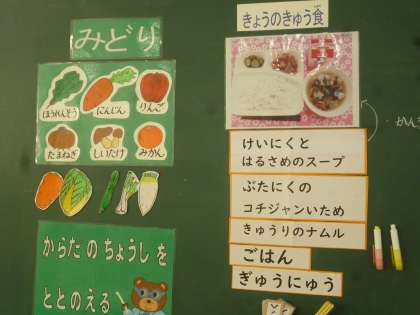 みどり
ほうれんそう
にんじん
りんご
たまねぎ
しいたけ
みかん
からだのちょうしを
ととのえる
きょうのきゅう食
けいにくと
はるさめのスープ
ぶたにくの
コチジャンいため
きゅうりのナムル
ごはん
ぎゅうにゅう